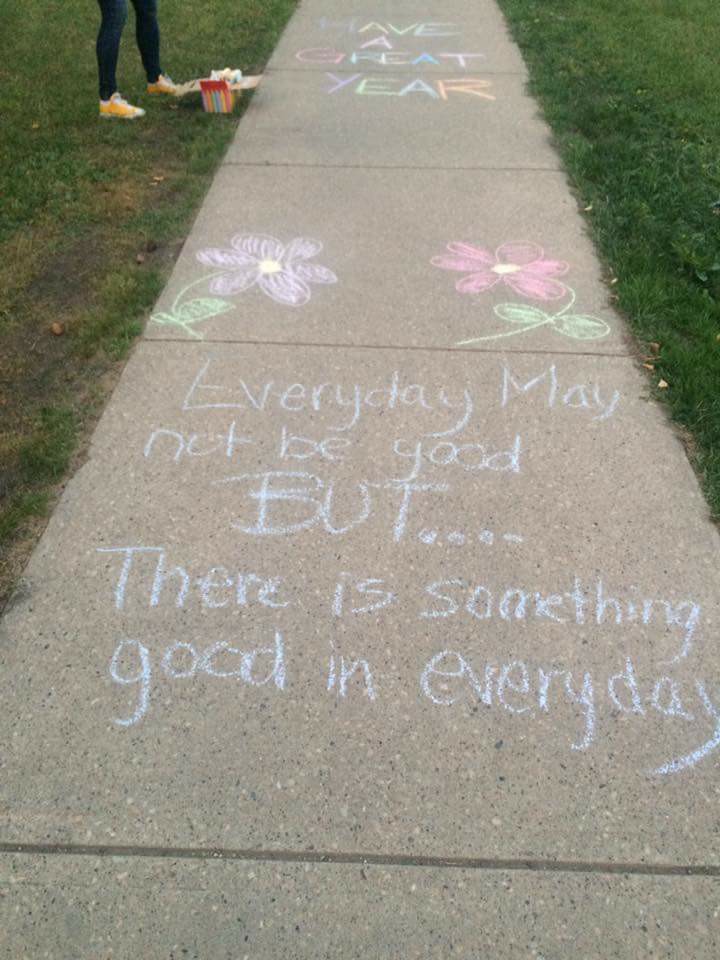 HAVE
A
GREAT
YEAR
Everyday May
not be good
BUT....
There is something
good in everyday